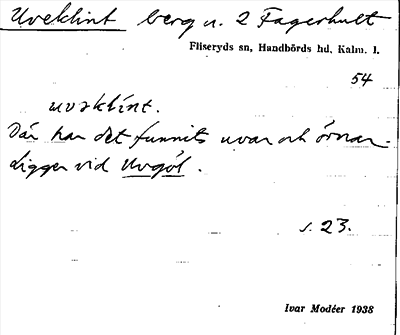 Uveklint berg u. 2 Fagerhult
Fliseryds sn, Handbörds hd, Kalm. l.
54
uvəklint.
Där har det funnits uvar och örnar.
Ligger vid Uvgöl.
s. 23.
Ivar Modéer 1938